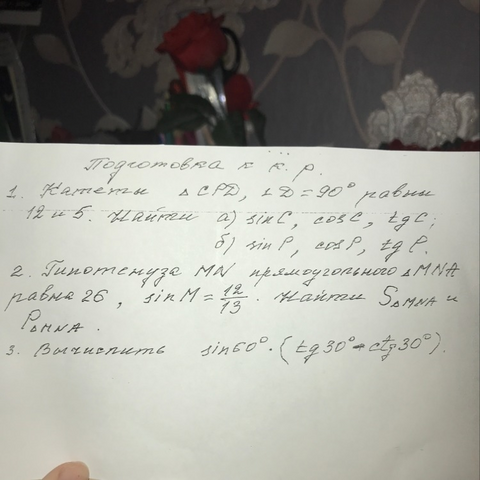 Подготовка к к.р.
1. Катеты △CPD, ∠D = 90° равны
12 и 5. Найти а) sinC, cosC, tgC;
б) sinP, cosP, tgP.
2. Гипотенуза MN прямоугольного △MNA
равна 26, sinM = 12/13. Найти S△MNA и
P△MNA.
3. Вычислить sin60°·(tg30° - ctg30°).